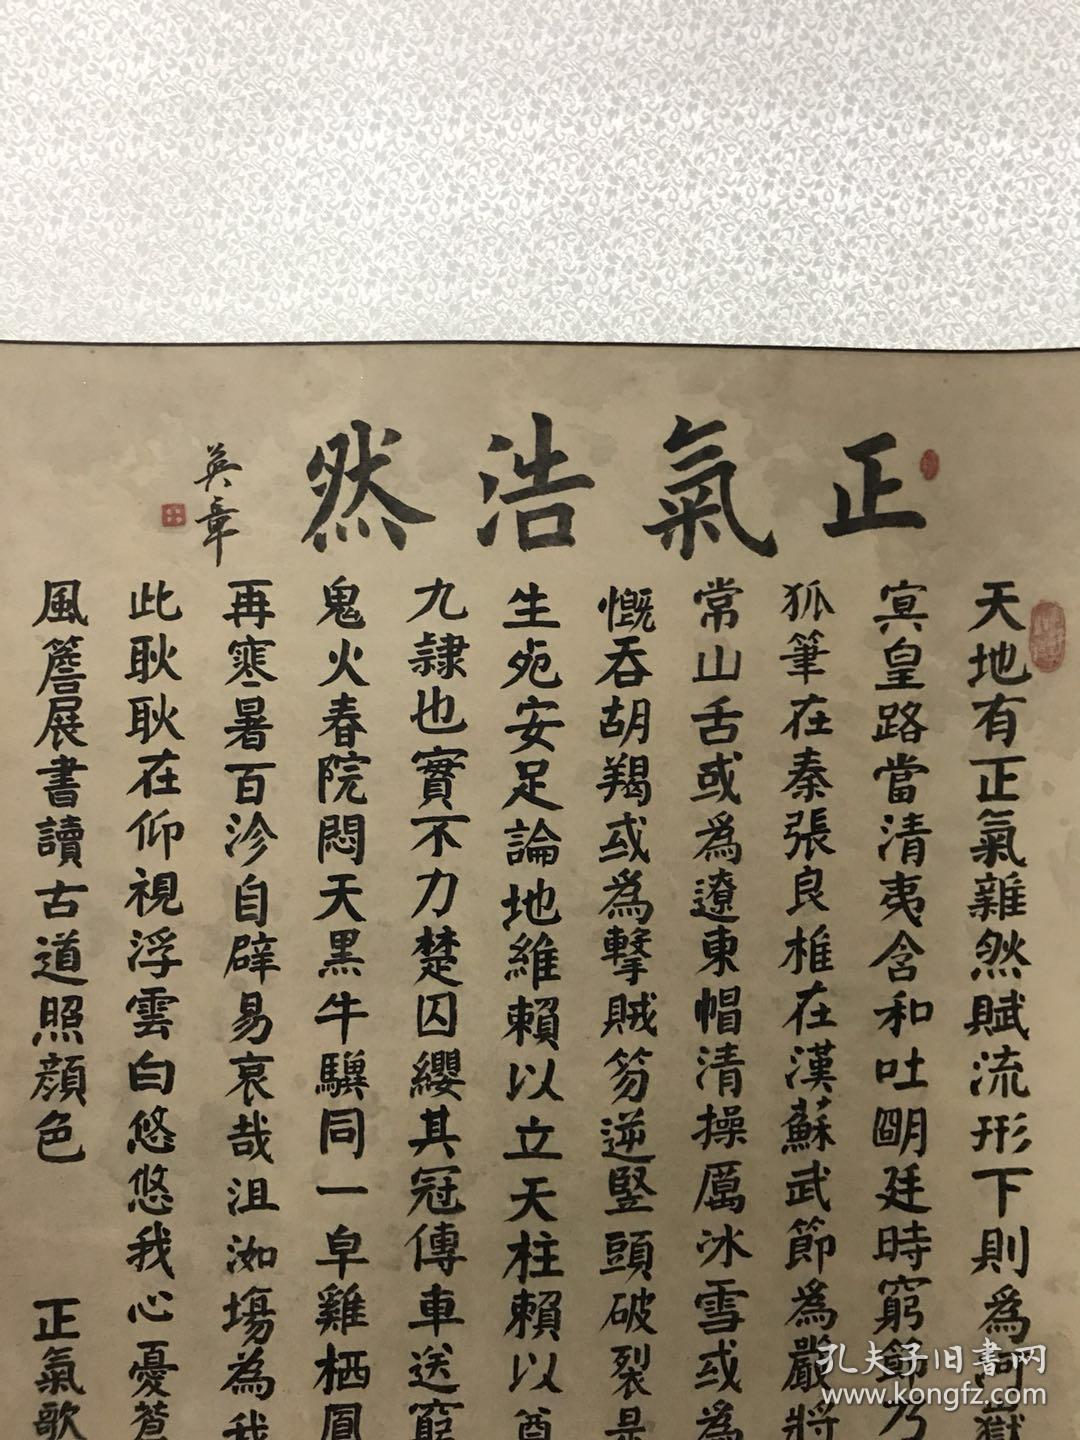 正氣浩然
英章
天地有正氣雜然賦流形下則為河嶽
冥皇路當清夷含和吐明廷時窮節乃
狐筆在秦張良椎在漢蘇武節為嚴將
常山舌或為遼東帽清操厲冰雪或為
慨吞胡羯或為擊賊笏逆豎頭破裂是
生死安足論地維賴以立天柱賴以尊
九隷也實不力楚囚纓其冠傳車送窮
鬼火春院悶天黑牛驥同一皁雞栖鳳
再寒暑百沴自辟易哀哉沮洳場為我
此耿耿在仰視浮雲白悠悠我心憂蒼
風簷展書讀古道照顏色 正氣歌
孔夫子旧書网
www.kongfz.com